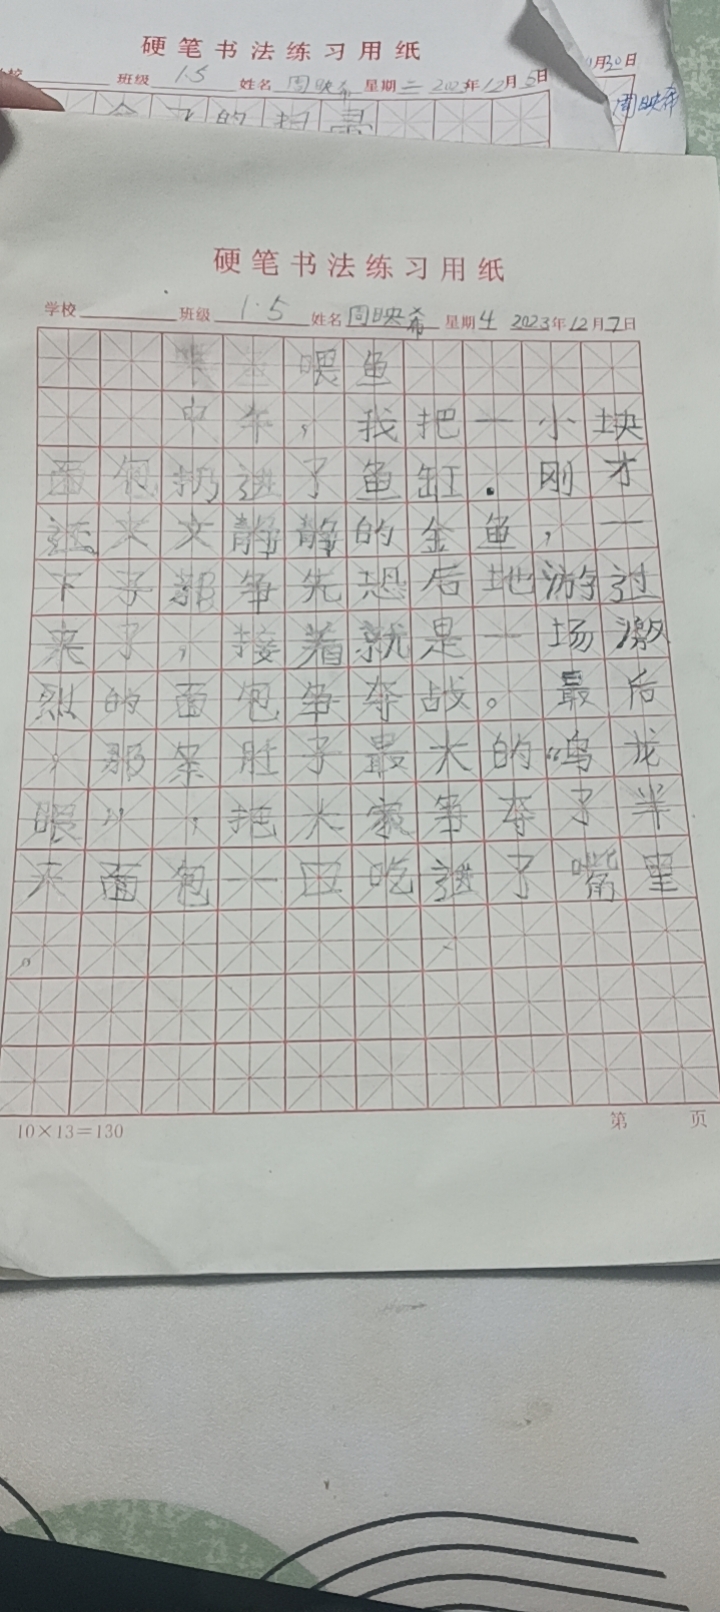 硬笔书法练习用纸
班级 1.5 姓名 周映希 星期二 2023年12月5日
月30日
周映希
的扫
硬笔书法练习用纸
学校 班级 1.5 姓名 周映希 星期4 2023年12月7日
喂鱼
中午，我把一小块
面包扔进了鱼缸.刚才
还文文静静的金鱼，一
下子都争先恐后地游过
来了，接着就是一场激
烈的面包争夺战。最后
，那条肚子最大的“乌龙
眼”，把大家争夺了半
天面包一口吃进了嘴里
。
10×13=130
第 页